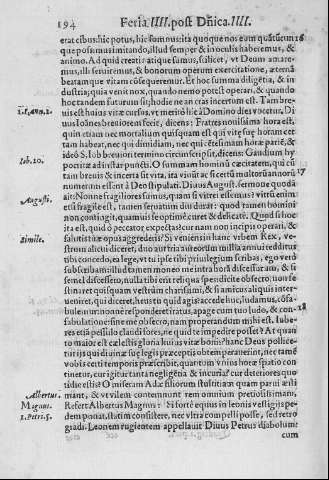 194 Feria IIII. post Dñica. IIII.
erat cibus: hic potus, hic somnus: ita quoque nos eum quātūcun
que possumus imitando, illud semper & in oculis haberemus, &
animo. Ad quid creati? atque sumus, scilicet, vt Deum amare-
mus, illi serviremus, & bonorum operum exercitatione, æternā
beatam que vitam cōsequeremur. Et hoc summa diligētia, & in
dustria; quia venit nox, quando nemo potest operari, & quando
hoc tandem futurum sit; hodie ne an cras incertum est. Tam bre-
vis est huius vitæ cursus, vt meritò hic à Domino dies vocetur. Di
vus Ioannes breviorem fecit, dicens: Fratres novissima hora est,
quin etiam nec mortalium quisquam est qui vitæ suę horam cer
tam habeat, nec qui dimidiam, nec qui
ideò S. Iob breviori termino circumscripsit, dicens: Gaudium hy
pocritæ ad instar puncti. O summam hominū cæcitatem, qui cū
tam brevis & incerta sit vita, ita vivūt ac si certū multorū annorū
numerum essent à Deo stipulati. Divus August. sermone quodā
ait: Nonne fragiliores sumus, quàm si vitrei essemus? vitrū enim
etsi fragile est, tamen servatum diu durat: quod tamen homini
non contingit, quamvis se optimè curet & delicatè. Quod si hoc
ita est, quid ò peccator expectas? cur nam non incipis operari, &
saluti tuæ opus aggredieris? Si veniens in hanc vrbem Rex, ve-
strum alicui diceret, duo auri tria aureorum millia annui redditus
tibi concedo, ea lege, vt tu ipse tibi privilegium scribas, ego verò
subscribam: illud tamen moneo me intra horā discessurum, & si
semel discessero, nulla tibi erit reliqua spes: indicite obsecro, non fe
stinaret quisquam vestrūm charissimi, & si amicus aliquis inter-
veniret, qui diceret, heus tu quid agis? accede huc, ludamus, cōfa-
bulemur: nonne responderet iratus, apage cum tuo ludo, & con-
fabulatione: sine me obsecro, nam properandum mihi est. Iube-
res etiā pessulo claudi fores, ne quid te impedire posset? At quan
to maior est cælestis gloria huius vitæ bonis? hanc Deus pollice-
tur ijs qui divinæ suę legis præceptis obtemperaverint, nec tamē
vobis quantum vecti temporis præscribit, quantum vnius horæ spatio con
tinetur, cur igitur tanta negligētia & incuria? cur deteriores quo
tidie estis? O miseram Adæ filiorum stultitiam quam parui æsti
mant, & vt vilem contemnunt rem omnium pretiosissimam.
Refert Albertus Magnus: Si fortè equus in leonis vestigijs pe-
dem ponat, statim consistere, nec vltra compelli posse, sed retro
gradi. Leonem rugientem appellavit Divus Petrus diabolum:
cum
1.Ioan.2.
Iob. 20.
Augusti.
Simile.
Albertus.
Magnus.
1.Petri.5.
16
17
18